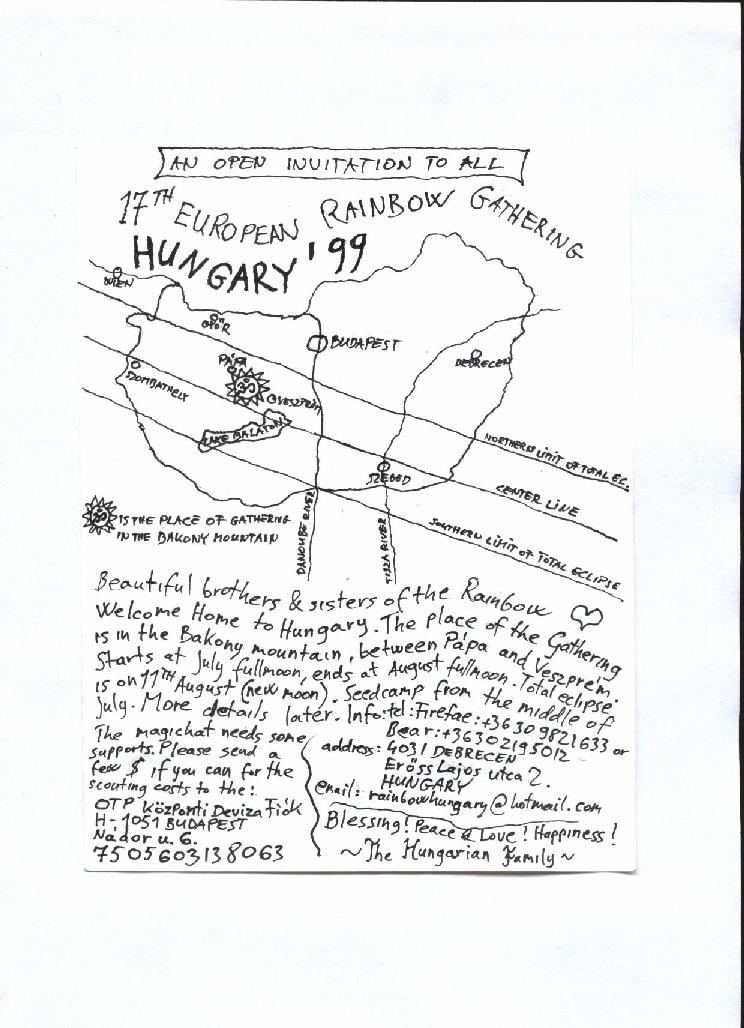 AN OPEN INVITATION TO ALL
17TH EUROPEAN RAINBOW GATHERING
HUNGARY '99
WIEN
GYŐR
BUDAPEST
PÁPA
DEBRECEN
SZOMBATHELY
VESZPRÉM
LAKE BALATON
SZEGED
NORTHERN LIMIT OF TOTAL EC.
CENTER LINE
SOUTHERN LIMIT OF TOTAL ECLIPSE
DANOUBE RIVER
TISZA RIVER
IS THE PLACE OF GATHERING
IN THE BAKONY MOUNTAIN
Beautiful brothers & sisters of the Rainbow
Welcome Home to Hungary. The place of the Gathering
is in the Bakony mountain, between Pápa and Veszprém.
Starts at July fullmoon, ends at August fullmoon. Total eclipse
is on 11TH August (new moon). Seedcamp from the middle of
July. More details later. Info: tel: Firefae: +36309821633 or
Bear: +36302195012
address: 4031 DEBRECEN
Erőss Lajos utca 2.
HUNGARY
email: rainbowhungary@hotmail.com
The magichat needs some
supports. Please send a
few $ if you can for the
scouting costs to the:
OTP Központi Deviza Fiók
H-1051 BUDAPEST
Nádor u. 6.
7505603138063
Blessing! Peace & Love! Happiness!
~The Hungarian Family~